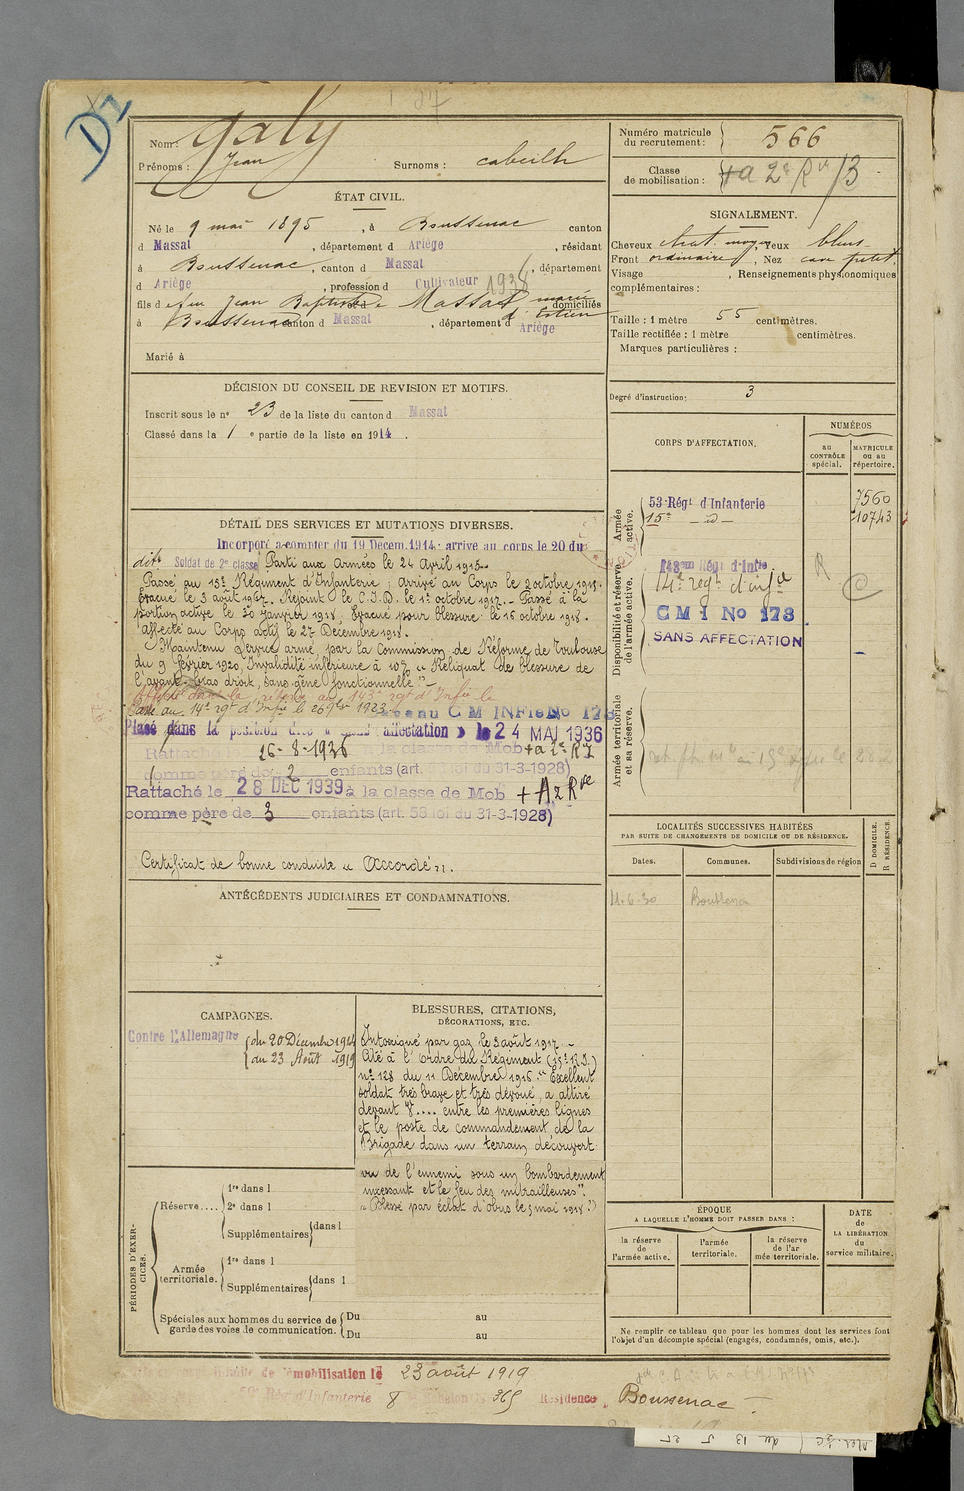 D 1
Nom: Galy
Prénoms: Jean Surnoms: cabeilh
Numéro matricule du recrutement: 566
Classe de mobilisation: +a 2e Rve /3
ÉTAT CIVIL.
Né le 9 mai 1895, à Boussenac canton
d Massat, département d Ariège, résidant
à Boussenac, canton d Massat, département
d Ariège, profession d Cultivateur 1938
fils de feu Jean Baptiste et de Massat marie domiciliés
à Boussenac canton d Massat, département d Ariège
Marié à
SIGNALEMENT.
Cheveux chat. moyen, Yeux bleus
Front ordinaire, Nez cave petit.
Visage , Renseignements physionomiques
complémentaires:
Taille: 1 mètre 55 centimètres.
Taille rectifiée: 1 mètre centimètres.
Marques particulières:
Degré d'instruction: 3
DÉCISION DU CONSEIL DE REVISION ET MOTIFS.
Inscrit sous le n° 23 de la liste du canton d Massat
Classé dans la 1 e partie de la liste en 1914.
DÉTAIL DES SERVICES ET MUTATIONS DIVERSES.
Incorporé à compter du 19 Décem. 1914: arrivé au corps le 20 du
dit. Soldat de 2e classe Parti aux Armées le 24 April 1915.
Passé au 15e Régiment d'Infanterie; arrivé au Corps le 2 octobre 1915.
Évacué le 3 août 1917. Rejoint le C.I.D. le 1er octobre 1917. Passé à la
portion active le 30 janvier 1918. Évacué pour blessure le 16 octobre 1918.
Affecté au Corps actif le 27 Décembre 1918.
Maintenu Service armé par la Commission de Réforme de Toulouse
du 9 février 1920, Invalidité inférieure à 10% "Reliquat de blessure de
l'avant-bras droit, sans gêne fonctionnelle".
Affecté dans la réserve au 143e rgt d'Infie le
Passé au 14e rgt d'Infie le 1923
CM INFie No 178
Placé dans la position dite « sans affectation » le 24 MAI 1936
Rattaché 16-8-1936 à la classe de Mob +a 2e R
comme père de 2 enfants (art. 58 loi du 31-3-1928)
Rattaché le 28 DEC 1939 à la classe de Mob + A 2 Rve
comme père de 3 enfants (art. 58 loi du 31-3-1928)
Certificat de bonne conduite "Accordé".
CORPS D'AFFECTATION.
NUMÉROS
au CONTRÔLE spécial.
MATRICULE ou au répertoire.
Armée active.
53 Régt d'Infanterie 7560
15e - d - 10743
Disponibilité et réserve de l'armée active.
143eme Régi d'Infie
14e regt d'infie
CMI No 178
SANS AFFECTATION
Armée territoriale et sa réserve.
LOCALITÉS SUCCESSIVES HABITÉES
PAR SUITE DE CHANGEMENTS DE DOMICILE OU DE RÉSIDENCE.
Dates. Communes. Subdivisions de région
D DOMICILE.
R RÉSIDENCE.
11-6-30 Boussenac
ANTÉCÉDENTS JUDICIAIRES ET CONDAMNATIONS.
CAMPAGNES.
Contre l'Allemagne
du 20 Décembre 1914
au 23 Août 1919
BLESSURES, CITATIONS,
DÉCORATIONS, ETC.
Intoxiqué par gaz le 3 août 1917.
Cité à l'Ordre du Régiment (15e R.I.)
n° 128 du 11 Décembre 1916. "Excellent
soldat très brave et très dévoué, a attiré
devant V.... entre les premières lignes
et le poste de commandement de la
Brigade dans un terrain découvert
vu de l'ennemi sous un bombardement
incessant et le feu des mitrailleuses".
"Blessé par éclat d'obus le 5 mai 1918."
PÉRIODES D'EXERCICES.
Réserve....
1re dans l
2e dans l
Supplémentaires dans l
Armée territoriale.
1re dans l
Supplémentaires dans l
Spéciales aux hommes du service de garde des voies de communication.
Du au
Du au
ÉPOQUE
A LAQUELLE L'HOMME DOIT PASSER DANS:
la réserve de l'armée active.
l'armée territoriale.
la réserve de l'armée territoriale.
DATE de LA LIBÉRATION du service militaire.
Ne remplir ce tableau que pour les hommes dont les services font
l'objet d'un décompte spécial (engagés, condamnés, omis, etc.).
de démobilisation le 23 août 1919
59e Rég d'Infanterie 8 Échelon 365 Résidence Boussenac